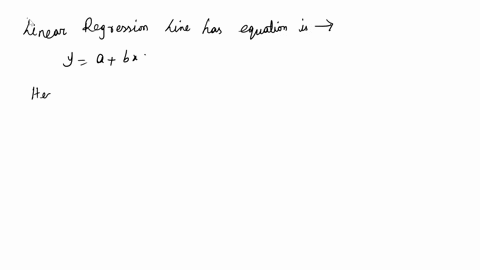 Linear Regression Line has equation is →
y = a + bx.
Her